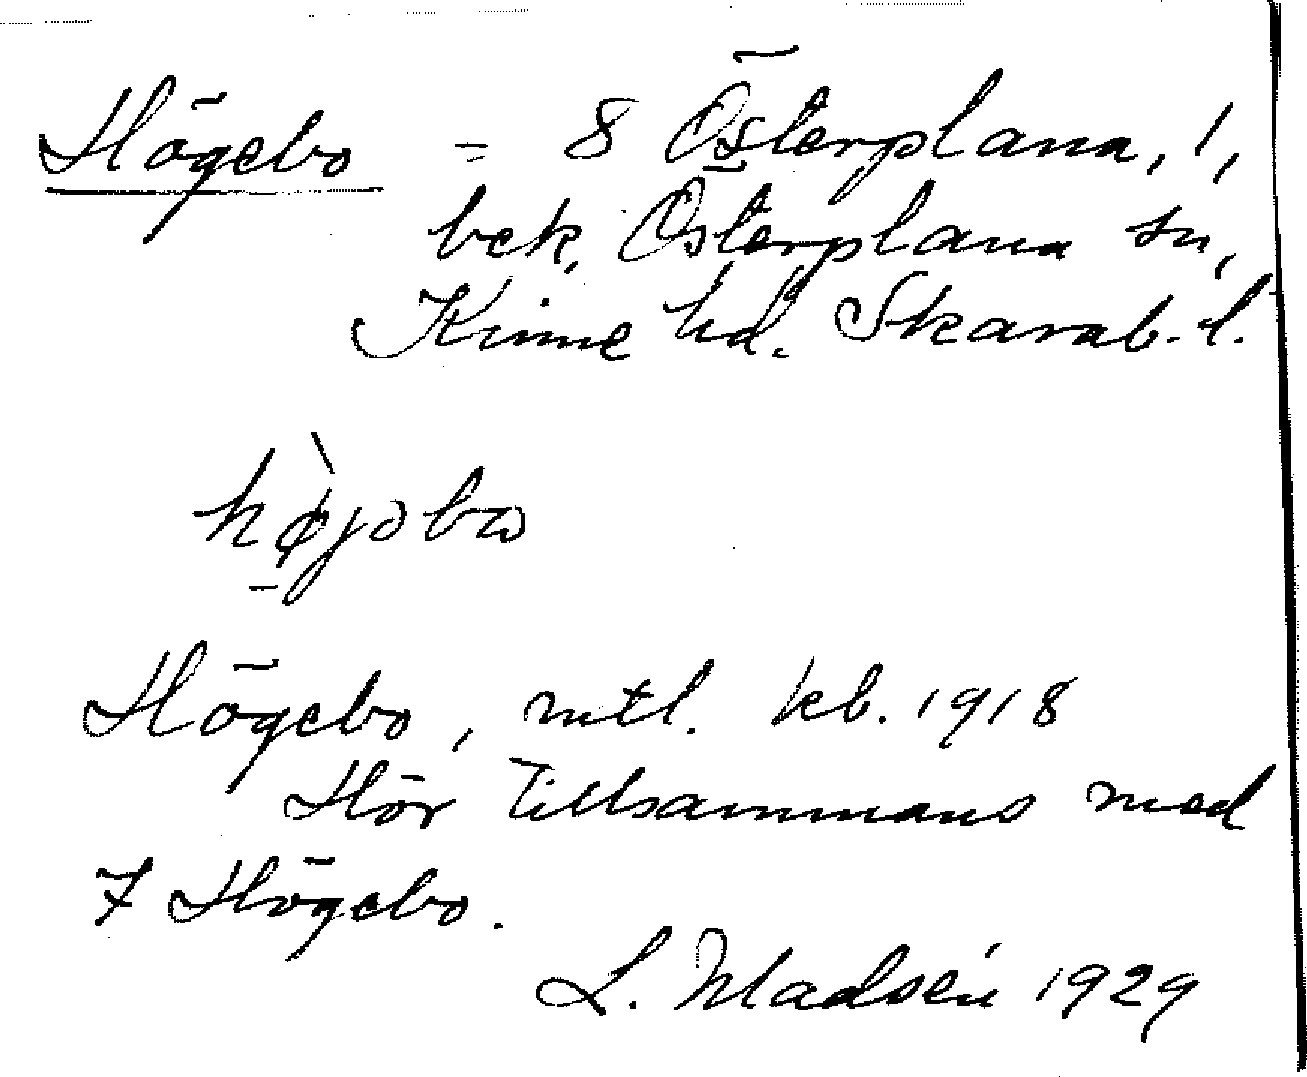 Högebo = 8 Österplana, 1,
bek, Österplana sn,
Kinne hd. Skarab. l.
Högebo, mtl. kb. 1918
Hör tillsammans med
7 Högebo.
L. Madsén 1929